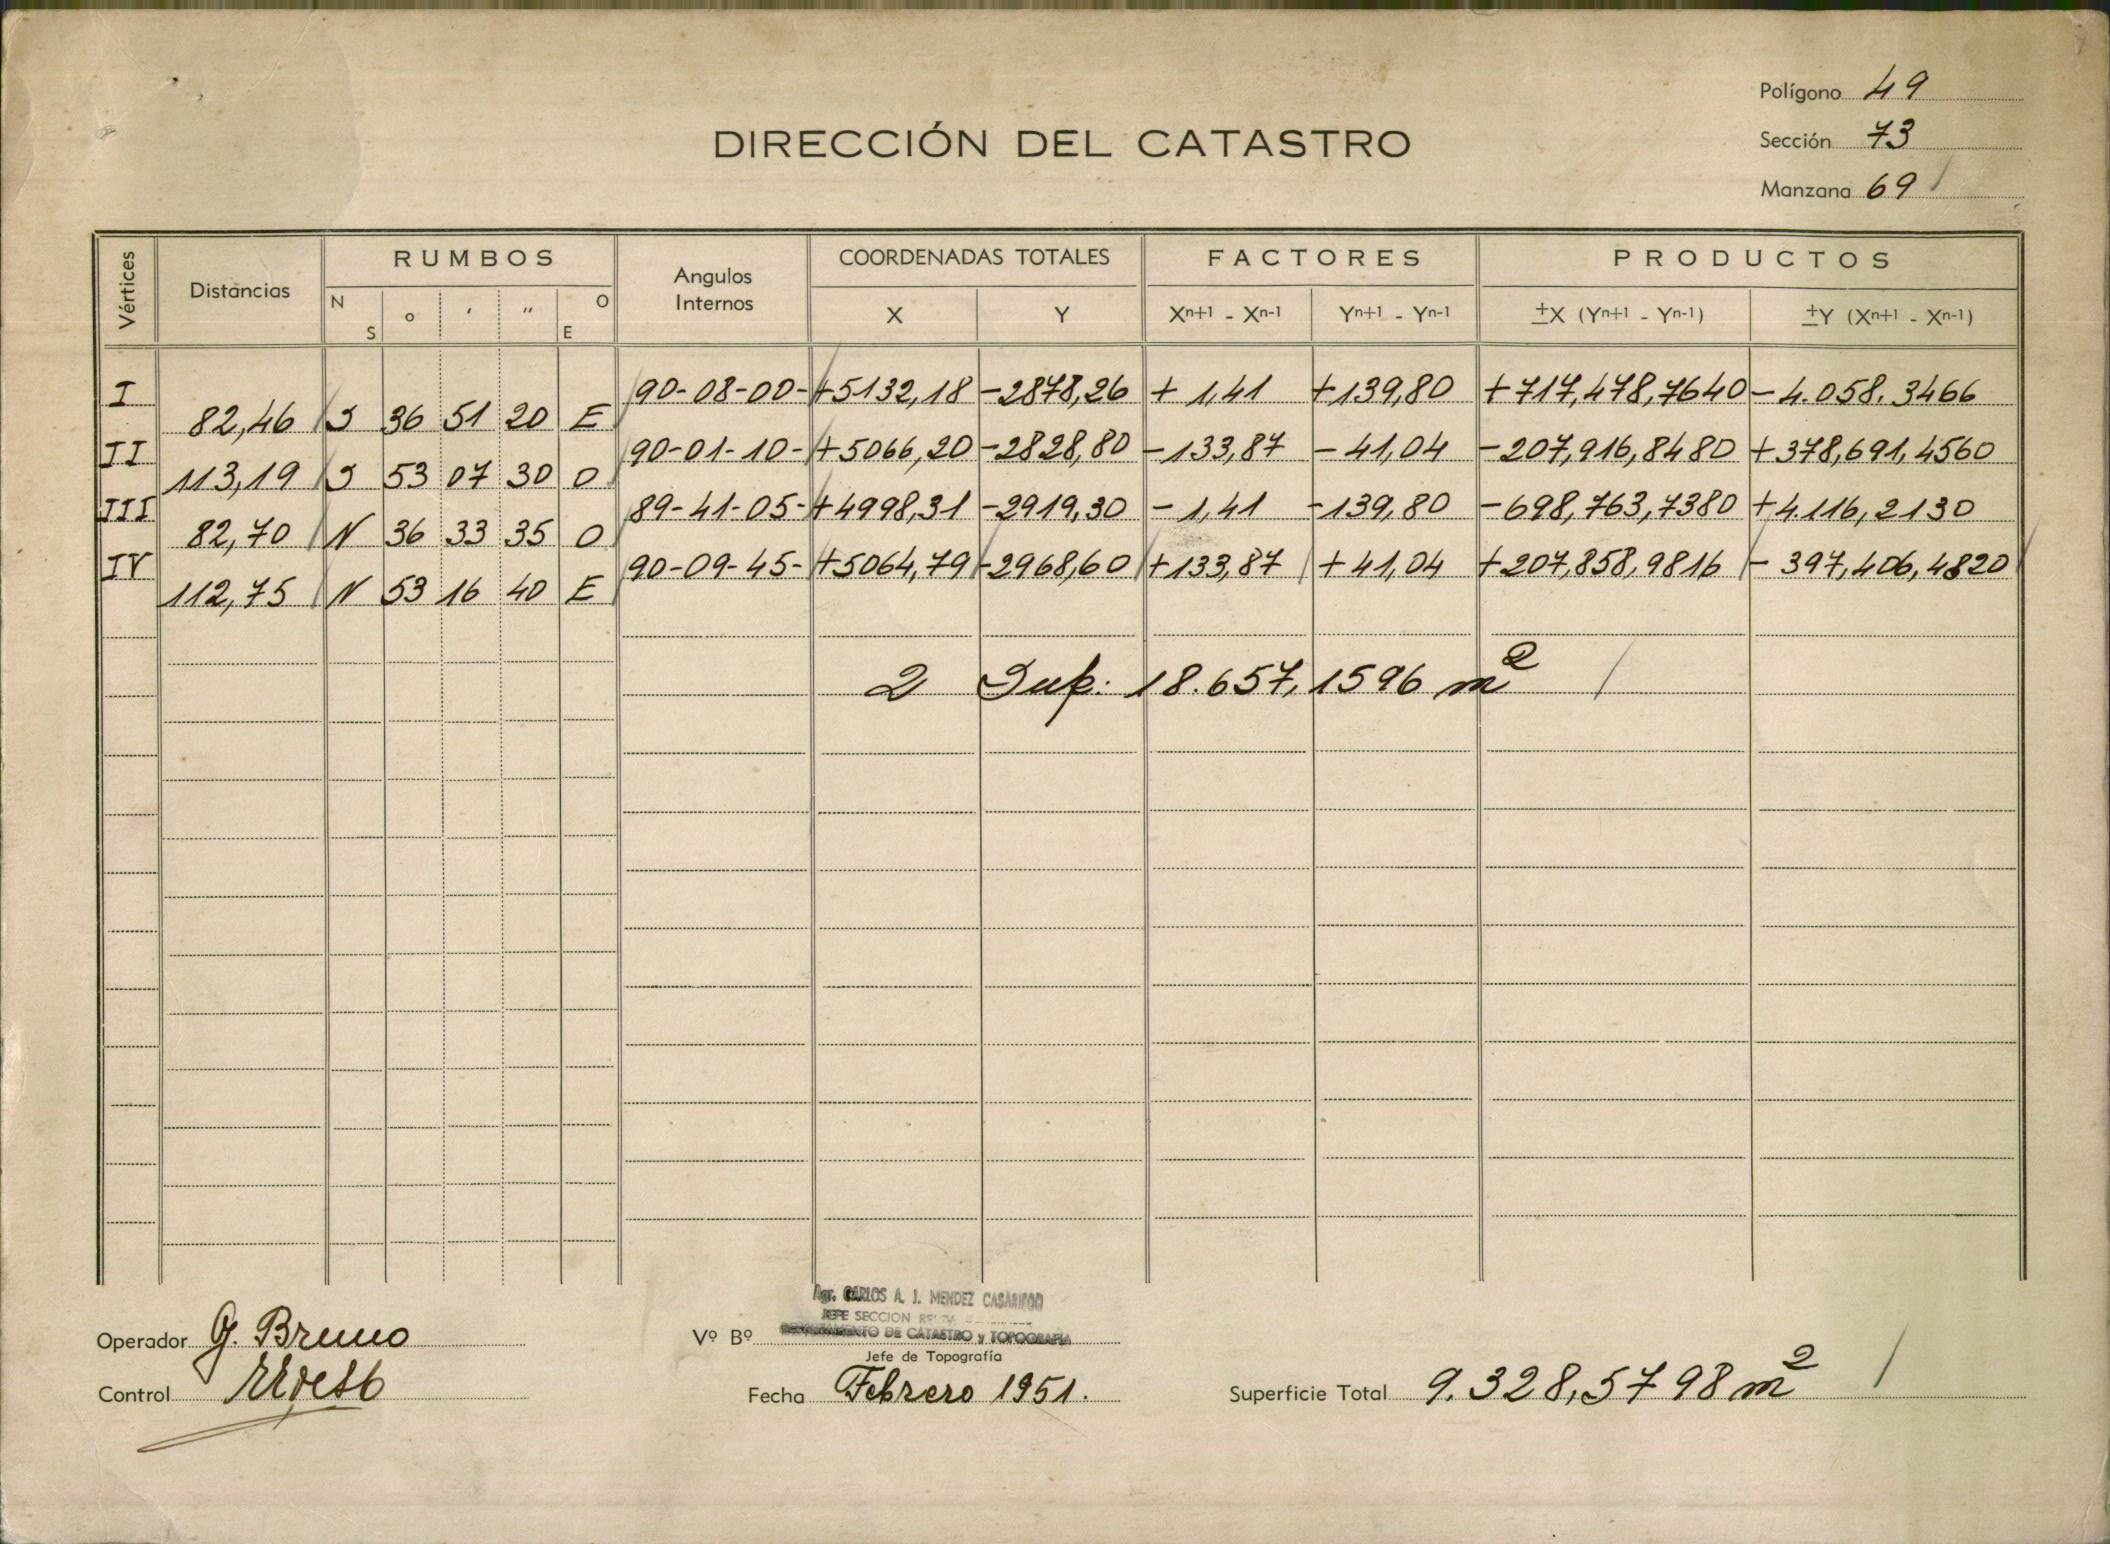 Polígono 49
DIRECCIÓN DEL CATASTRO
Sección 73
Manzana 69
Vértices Distancias RUMBOS Angulos Internos COORDENADAS TOTALES FACTORES PRODUCTOS
N S o ' " O E X Y Xn+1 - Xn-1 Yn+1 - Yn-1 ±X (Yn+1 - Yn-1) ±Y (Xn+1 - Xn-1)
I 90-08-00- +5132,18 -2878,26 + 1,41 +139,80 +717,478,7640 -4.058.3466
82,46 S 36 51 20 E
II 90-01-10- +5066,20 -2828,80 -133,87 -41,04 -207,916,8480 +378,691,4560
113,19 S 53 07 30 O
III 89-41-05- +4998,31 -2919,30 -1,41 -139,80 -698,763,7380 +4.116,2130
82,70 N 36 33 35 O
IV 90-09-45- +5064,79 -2968,60 +133,87 +41,04 +207,858,9816 -397,406,4820
112,75 N 53 16 40 E
2 Sup: 18.657,1596 m2
Agr. CARLOS A. J. MENDEZ
JEFE SECCION
Operador G. Bruno Vº Bº DEPARTAMENTO DE CATASTRO y TOPOGRAFIA
Jefe de Topografía
Control Fecha Febrero 1951. Superficie Total 9.328,5798 m2